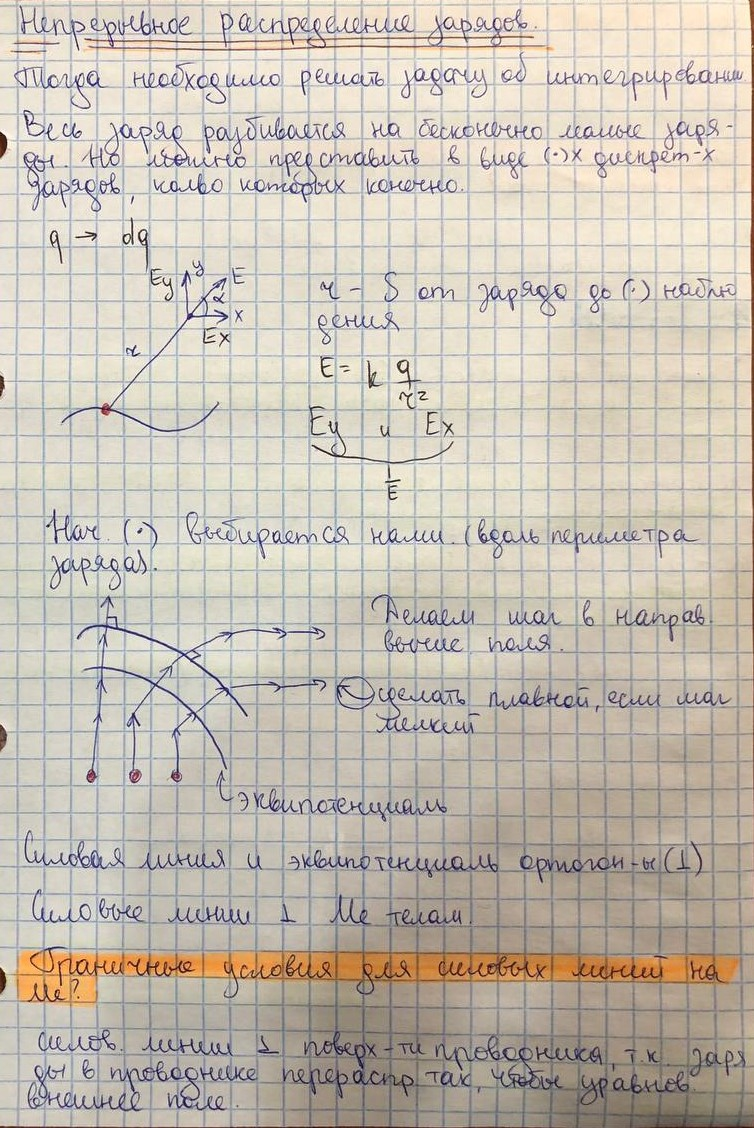 Непрерывное распределение зарядов.
Тогда необходимо решать задачу об интегрировании
Весь заряд разбивается на бесконечно малые заря-
ды. Но можно представить в виде (·)х дискрет-х
зарядов, колво которых конечно.
q → dq
Ey y E
α
x
Ex
r
r - S от заряда до (·) наблю
дения
E = k q/r²
Ey и Ex
E
Нач. (·) выбирается нами. (вдоль периметра
заряда).
Делаем шаг в направ.
поля.
сделать плавной, если шаг
мелкий
эквипотенциаль
Силовая линия и эквипотенциаль ортогон-ы (⊥)
Силовые линии ⊥ Me телам.
Граничные условия для силовых линий на
Me?
силов. линии ⊥ поверх-ти проводника, т.к. заря
ды в проводнике перераспр. так, чтобы уравнов.
внешнее поле.